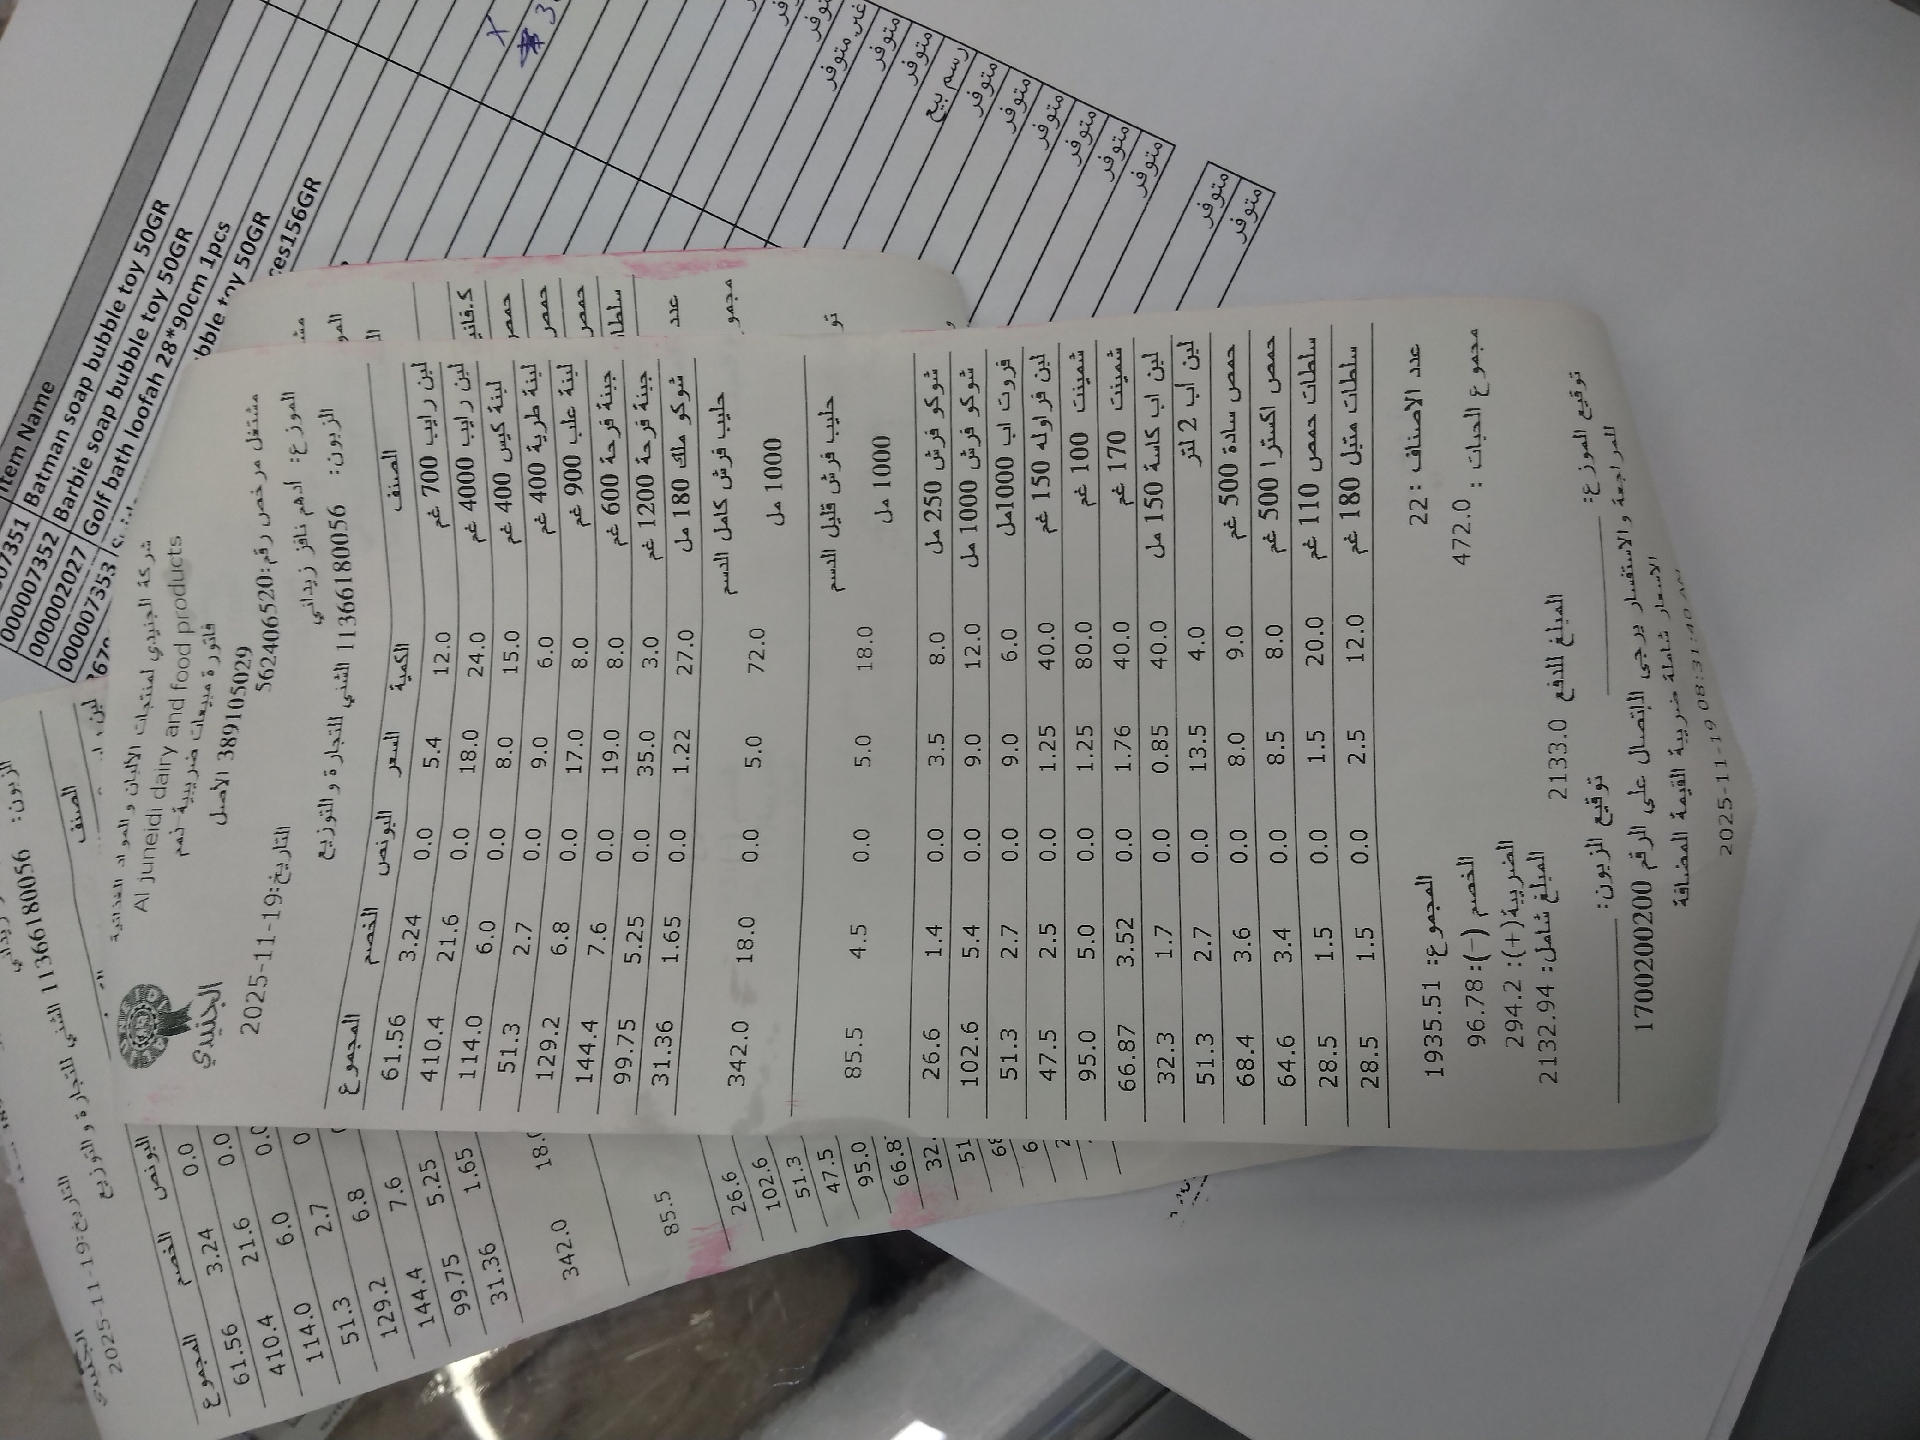 شركة الجنيدي لمنتجات الالبان والمواد الغذائية
Al juneidi dairy and food products
فاتورة مبيعات ضريبية-نهم
389105029 الاصل
الجنيدي
مشتغل مرخص رقم:562406520
2025-11-19:التاريخ
الموزع: أدهم نافز زيداني
الزبون: 1136618005​6 الشني للتجارة والتوزيع
الصنف الكمية السعر البونص الخصم المجموع
لبن رايب 700 غم 12.0 5.4 0.0 3.24 61.56
لبن رايب 4000 غم 24.0 18.0 0.0 21.6 410.4
لبنة كيس 400 غم 15.0 8.0 0.0 6.0 114.0
لبنة طرية 400 غم 6.0 9.0 0.0 2.7 51.3
لبنة علب 900 غم 8.0 17.0 0.0 6.8 129.2
جبنة فرحة 600 غم 8.0 19.0 0.0 7.6 144.4
جبنة فرحة 1200 غم 3.0 35.0 0.0 5.25 99.75
شوكو ملك 180 مل 27.0 1.22 0.0 1.65 31.36
حليب فرش كامل الدسم
1000 مل 72.0 5.0 0.0 18.0 342.0
حليب فرش قليل الدسم
1000 مل 18.0 5.0 0.0 4.5 85.5
شوكو فرش 250 مل 8.0 3.5 0.0 1.4 26.6
شوكو فرش 1000 مل 12.0 9.0 0.0 5.4 102.6
فروت اب 1000مل 6.0 9.0 0.0 2.7 51.3
لبن فراوله 150 غم 40.0 1.25 0.0 2.5 47.5
شمينت 100 غم 80.0 1.25 0.0 5.0 95.0
شمينت 170 غم 40.0 1.76 0.0 3.52 66.87
لبن اب كاسة 150 مل 40.0 0.85 0.0 1.7 32.3
لبن اب 2 لتر 4.0 13.5 0.0 2.7 51.3
حمص سادة 500 غم 9.0 8.0 0.0 3.6 68.4
حمص اكسترا 500 غم 8.0 8.5 0.0 3.4 64.6
سلطات حمص 110 غم 20.0 1.5 0.0 1.5 28.5
سلطات متبل 180 غم 12.0 2.5 0.0 1.5 28.5
عدد الاصناف : 22
المجموع: 1935.51
مجموع الحبات : 472.0
الخصم (-): 96.78
الضريبة(+): 294.2
المبلغ شامل: 2132.94
المبلغ للدفع 2133.0
توقيع الموزع:
توقيع الزبون:
للمراجعة والاستفسار يرجى الاتصال على الرقم 1700200200
الاسعار شاملة ضريبة القيمة المضافة
2025-11-19 08:31:40 AM
Item Name
000007351 Batman soap bubble toy 50GR
000007352 Barbie soap bubble toy 50GR
000002027 Golf bath loofah 28*90cm 1pcs
000007353
bubble toy 50GR
156GR
متوفر
غير متوفر
متوفر
متوفر
رسم بيع
متوفر
متوفر
متوفر
متوفر
متوفر
متوفر
متوفر
متوفر
الزبون: 11366180056 الشني للتجارة والتوزيع
الجنيدي
2025-11-19:التاريخ
الصنف
البونص الخصم المجموع
0.0 3.24 61.56
0.0 21.6 410.4
6.0 114.0
2.7 51.3
6.8 129.2
7.6 144.4
5.25 99.75
1.65 31.36
342.0
85.5
26.6
102.6
51.3
47.5
95.0